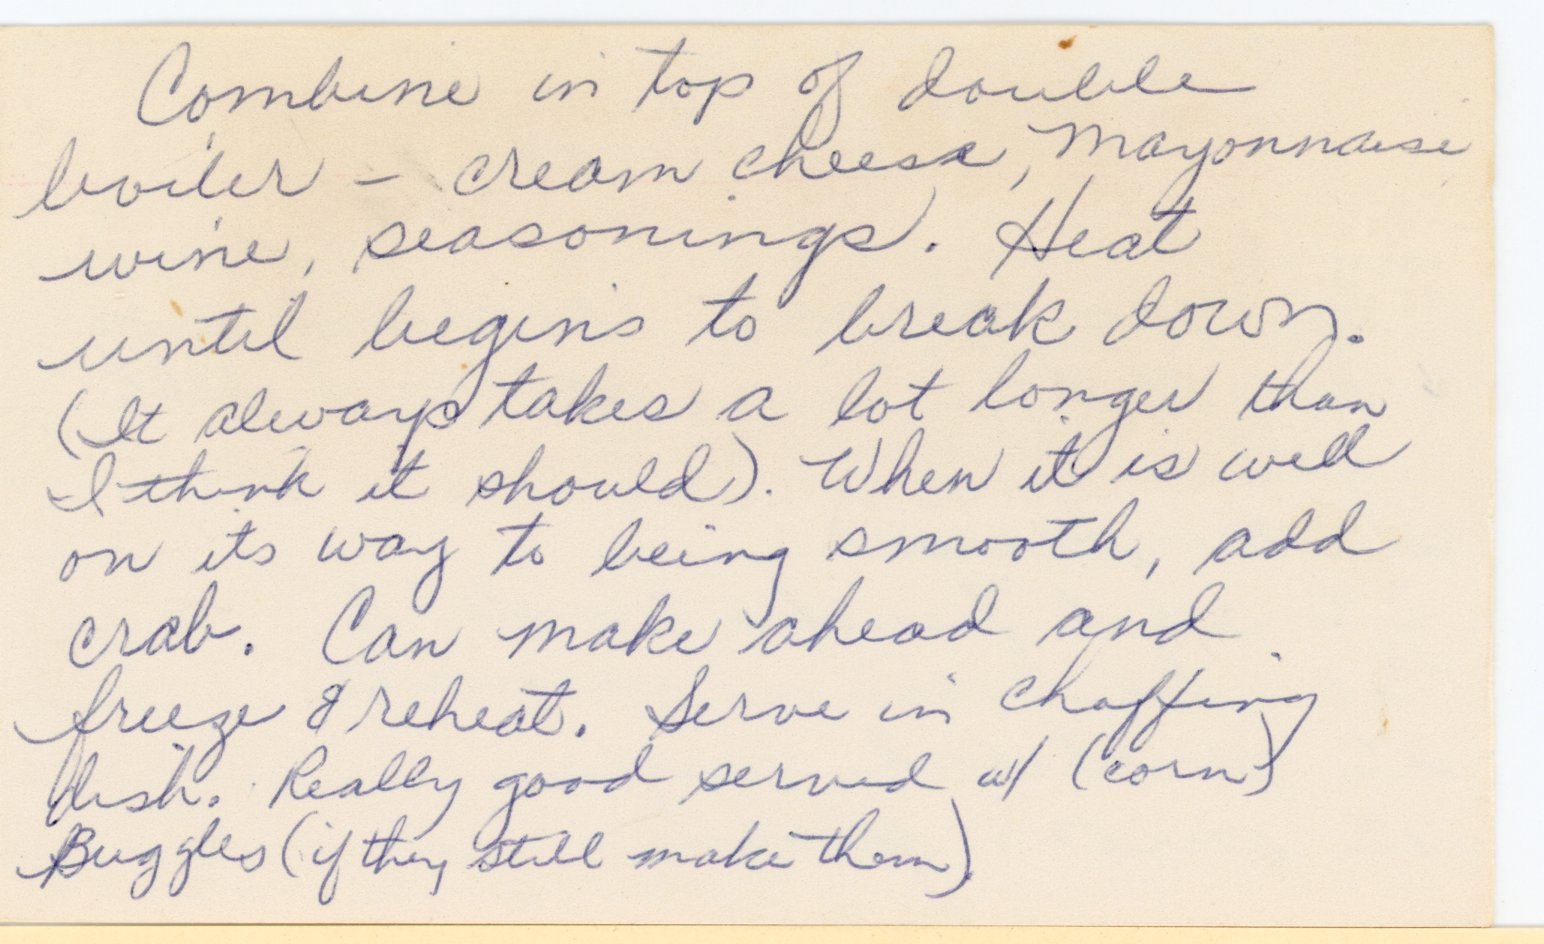 Combine in top of double
boiler - cream cheese, Mayonnaise
wine, seasonings. Heat
until begins to break down.
(It always takes a lot longer than
I think it should). When it is well
on its way to being smooth, add
crab. Can make ahead and
freeze & reheat. Serve in Chaffing
dish. Really good served w/ (corn)
Buggles (if they still make them)